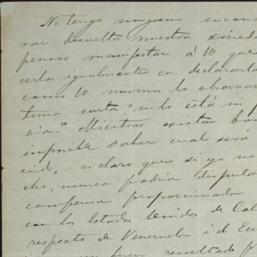 No tengo ninguna incon
var disuelta nuestra socied
pienso manifestar á V. que
cerlo igualmente en declararla
como V. mismo lo observar
tima carta "no lo está ni
dia." Mientras existan
imposible saber cual será
es claro que si yo no
cho, nunca podria disputar
compensa proporcionada
con los Estados Unidos de Col
respecto de Venezuela i el Ecu
buen resultado